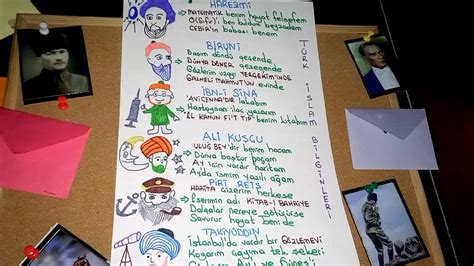 HAREZMİ
MATEMATİK benim hayat felsefem
0 (Sıfır)'ı ben buldum beyzadem
CEBİR'in babası benem
BİRUNİ
Başım döndü geçende
DÜNYA DÖNER gezegende
Gözlerim uzay YERÇEKİMİNDE
GAZNELİ MAHMUT'UN evinde
İBN-İ SİNA
"AVİCENNA'DIR lakabım
Hastaysan ilaç yazarım
"EL KANUN Fİ'T TIP" benim kitabım
ALİ KUŞÇU
ULUĞ BEY'dir benim hocam
Dünya boştur paşam
Ay için vardır haritam
Ayda ismim yazılı ağam
PİRİ REİS
HARİTA çizerim herkese
Eserimin adı KİTAB-I BAHRİYE
Dalgalar nereye götürürse
Savrulur hayat bende
TAKİYÜDDİN
İstanbul'da vardır bir GÖZLEMEVİ
Koyarım çayıma tek şekeri
TÜRK İSLAM BİLGİNLERİ